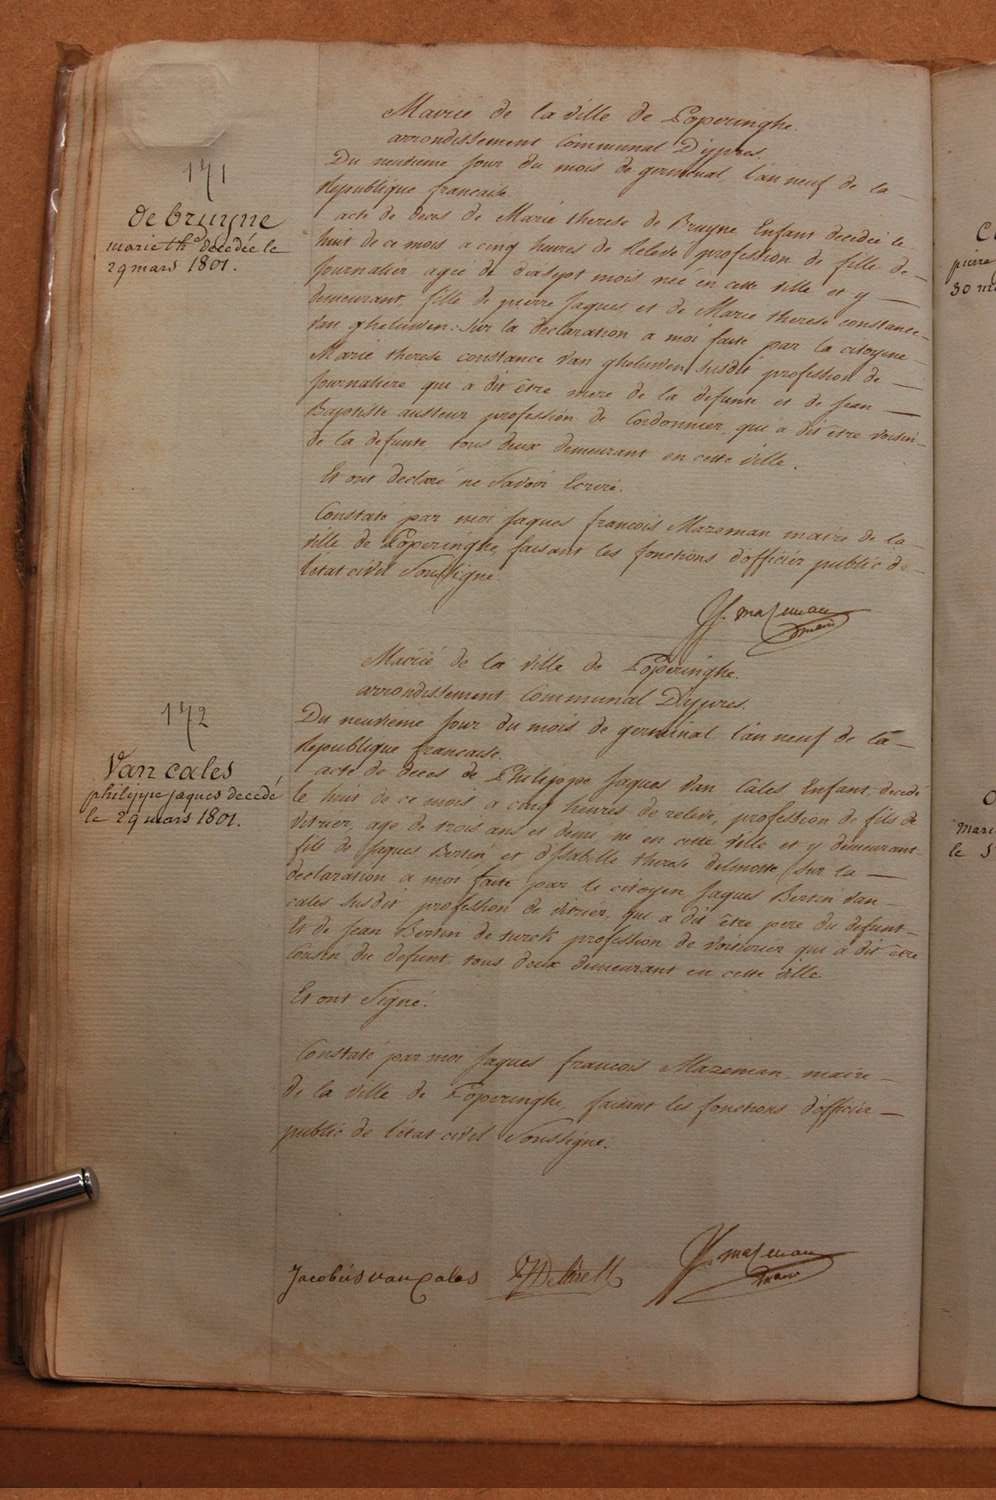 Mairie de la ville de Poperinghe.
arrondissement Communal D'ypres
171
Du neuvieme jour du mois de germinal, l'an neuf de la
Republique francaise
de bruyne
marie th.e decedée le
29 mars 1801.
acte de deces de Marie therese de Bruyne Enfant decedée le
huit de ce mois a cinq heures de relevé, profession de fille de
Journalier agée de dixsept mois née en cette ville et y
demeurant, fille de pierre Jaques et de Marie therese constance
Van gheluwen: sur la declaration a moi faite par la citoyene
Marie therese constance Van gheluwen susdit profession de
Journaliere qui a dit être mere de la defunte et de Jean
Baptiste profession de Cordonnier, qui a dit être voisin
de la defunte, tous deux demeurant en cette ville.
Et ont declaré ne Savoir Ecrire.
Constaté par moi Jaques francois Mazeman maire de la
ville de Poperinghe, faisant les fonctions d'officier public de
l'etat civil Soussigné.
JF. mazeman
maire
Mairie de la ville de Poperinghe.
arrondissement Communal D'ypres.
172
Du neuvieme jour du mois de germinal l'an neuf de la
Republique francaise.
Van cales
philippe jaques decedé
le 29 mars 1801.
acte de deces de Philippe Jaques Van Cales Enfant, decedé
le huit de ce mois a cinq heures de relevé, profession de fils de
vitrier, agé de trois ans et demi né en cette ville et y demeurant
fils de Jaques Bertin et d'Isabelle therese delmotte, sur la
declaration a moi faite par le citoyen Jaques Bertin Van
cales susdit profession de vitrier, qui a dit être pere du defunt
Et de Jean Bertin de turck profession de voiturier qui a dit être
Cousin du defunt, tous deux demeurant en cette ville
Et ont Signé.
Constaté par moi Jaques francois Mazeman maire
de la ville de Poperinghe, faisant les fonctions d'officier
public de l'etat civil Soussigné.
Jacobus van Cales
JF. mazeman
maire
pierre
30 m
mari
le